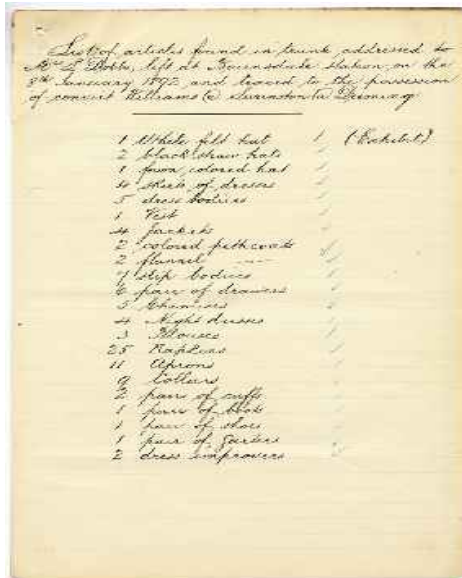 List of articles found in trunk addressed to
Mrs Dobbs, left at Bairnsdale Station on the
8th January 1892 and traced to the possession
of convict Williams @ Swanston @ Deeming
1 White felt hat 1 (Exhibit)
2 black straw hats
1 fawn colored hat
4 skirts of dresses
5 dress bodices
1 Vest
4 Jackets
2 colored petticoats
2 flannel
7 slip bodices
6 pair of drawers
5 Chemises
4 Night dresses
3 Blouses
25 Napkins
11 Aprons
9 Collars
2 pair of cuffs
1 pair of boots
1 pair of shoes
1 pair of garters
2 dress improvers